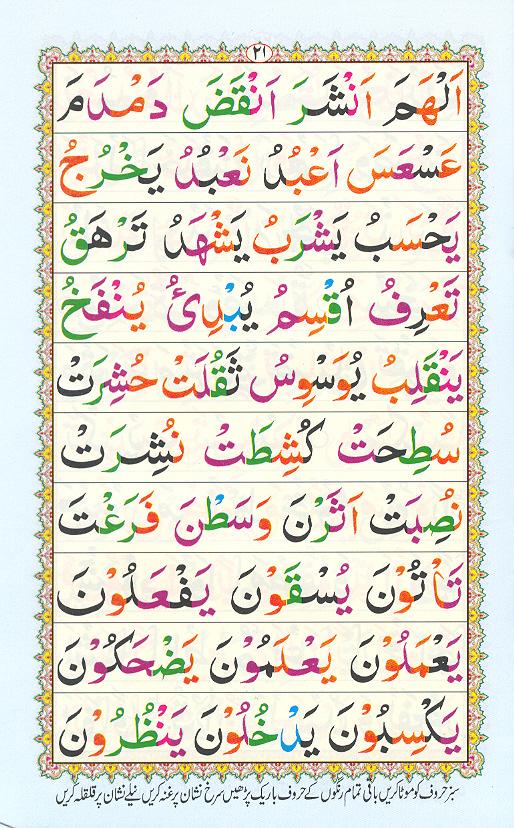 ٢١
اَلْهَمَ اَنْشَرَ اَنْقَضَ دَمْدَمَ
عَسْعَسَ اَعْبُدُ نَعْبُدُ يَخْرُجُ
يَحْسَبُ يَشْرَبُ يَشْهَدُ تَرْهَقُ
تَعْرِفُ اُقْسِمُ يُبْدِئُ يُنْفَخُ
يَنْقَلِبُ يُوَسْوِسُ ثَقُلَتْ حُشِرَتْ
سُطِحَتْ كُشِطَتْ نُشِرَتْ
نُصِبَتْ اَثَرْنَ وَسَطْنَ فَرَغْتَ
تَأْتُوْنَ يُسْقَوْنَ يَفْعَلُوْنَ
يَعْمَلُوْنَ يَعْلَمُوْنَ يَضْحَكُوْنَ
يَكْسِبُوْنَ يَدْخُلُوْنَ يَنْظُرُوْنَ
سبز حروف کو موٹا کریں باقی تمام رنگوں کے حروف باریک پڑھیں سرخ نشان پر غنہ کریں نیلے نشان پر قلقلہ کریں